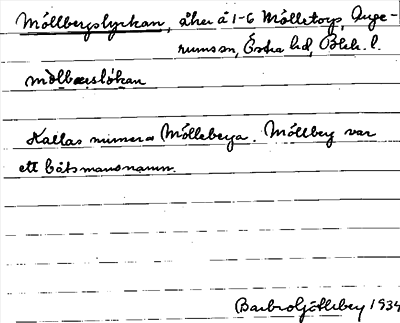 Möllbergslyckan, åker å 1-6 Mölletorp, Auge-
rums sn, Östra hd, Blek. l.
mölbærslökan
Kallas numera Mölleberga. Möllberg var
ett båtsmansnamn.
Barbro Götlibey 1934